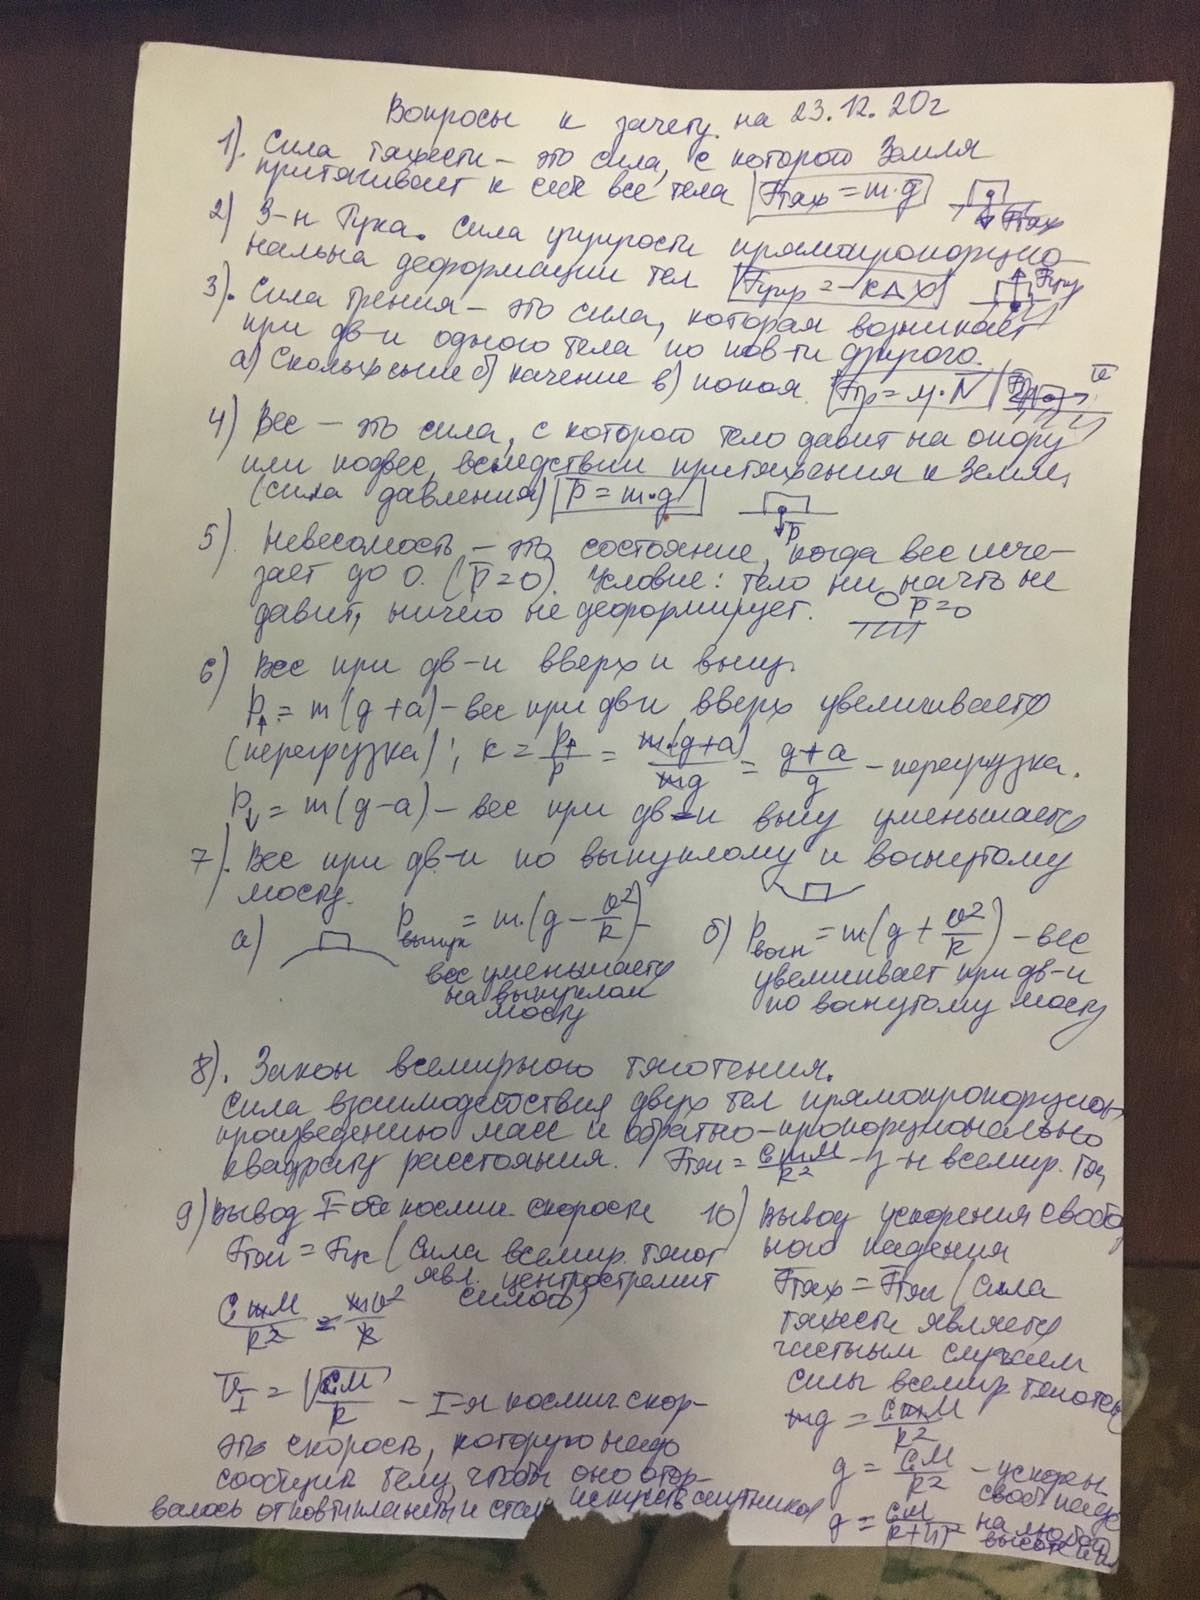 Вопросы к зачету на 23.12.20г
1). Сила тяжести – это сила, с которого Земля
притягивает к себе все тела Fтяж = m·g Fтяж
2) З-н Гука. Сила упругости прямопропорцио-
нальна деформации тел Fупр = –кΔх Fупр
3). Сила трения – это сила, которая возникает
при дв-и одного тела по пов-ти другого.
а) Скольжение б) качение в) покоя. Fтр = μ·N
4) Вес – это сила, с которого тело давит на опору
или подвес, вследствии притяжения к Земле,
(сила давления) P = m·g P
5) Невесомость – это состояние, когда вес исче-
зает до 0. (P = 0). Условие: тело ни на что не
давит, ничего не деформирует. P = 0
6) Вес при дв-и вверх и вниз.
P↑ = m(g+a) – вес при дв-и вверх увеличивается
(перегрузка); к = P↑/P = m(g+a)/mg = g+a/g – перегрузка.
P↓ = m(g-a) – вес при дв-и вниз уменьшается
7). Вес при дв-и по выпуклому и вогнутому
мосту.
а) Pвыпук = m·(g – υ²/R) –
вес уменьшается
на выпуклом
мосту
б) Pвогн = m(g + υ²/R) – вес
увеличивает при дв-и
по вогнутому мосту
8). Закон всемирного тяготения.
Сила взаимодействия двух тел прямопропорцион,
произведению масс и обратно-пропорционально
квадрату расстояния. Fтяг = GmM/R² – з-н всемир. тяг
9) Вывод I-ой космич скорости
Fтяг = Fцс (Сила всемир. тягот
явл. центростремит
силой)
GmM/R² = mυ²/R
υI = √GM/R – I-я космич скор-
это скорость, которую надо
сообщить телу, чтобы оно отор-
валось от пов-ти планеты и стал искусств спутником
10) Вывод ускорения свобод
ного падения
Fтяж = Fтяг (Сила
тяжести является
частным случаем
силы всемир тяготен
mg = GmM/R²
g = GM/R² – ускорен
своб паде
g = GM/(R+h)² на любой
высоте